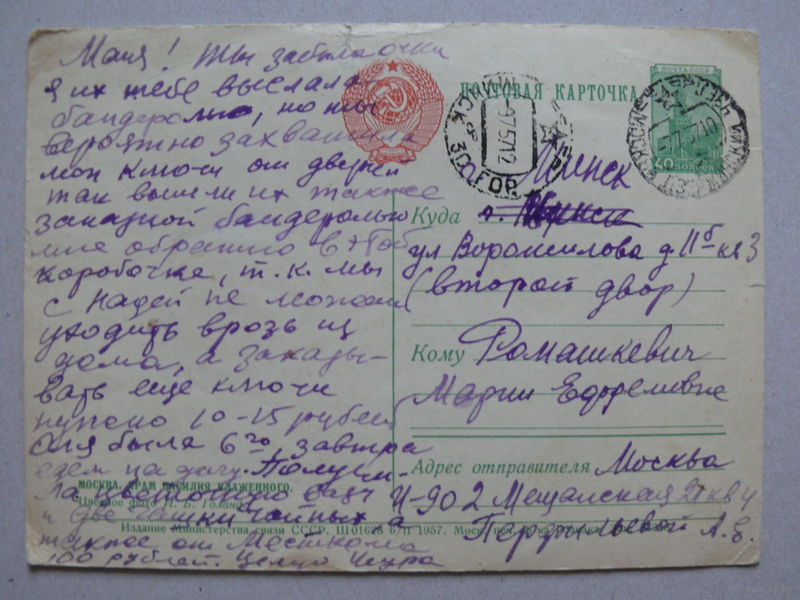 Маня! Ты забыла очки
я их тебе выслала
бандеролью, но ты
вероятно захватила
мои ключи от дверей
так вышли их также
заказной бандеролью
мне обратно в этой
коробочке, т.к. мы
с Надей не можем
уходить врозь из
дома, а заказы-
вать еще ключи
нужно 10-15 рублей
Оля была 6го завтра
едем на дачу. Получи-
ла цветочную вазу
и две чашки чайных а
также от Месткома
100 рублей. Целую
ПОЧТОВАЯ КАРТОЧКА
ПОЧТА СССР
40 КОПЕЕК
МИНСК
-975712
30 ГОР.
-7.7.57.10
г. Минск
Куда г. Минск
ул Ворошилова д 11б кв 3
(второй двор)
Кому Ромашкевич
Марии
Адрес отправителя Москва
И-90 2 Мещанская 21 кв 4
А. Е.
МОСКВА. ХРАМ ВАСИЛИЯ БЛАЖЕННОГО.
Цветное фото И. Б. Голанда
Издание Министерства связи СССР. Ш01628 6/II 1957.